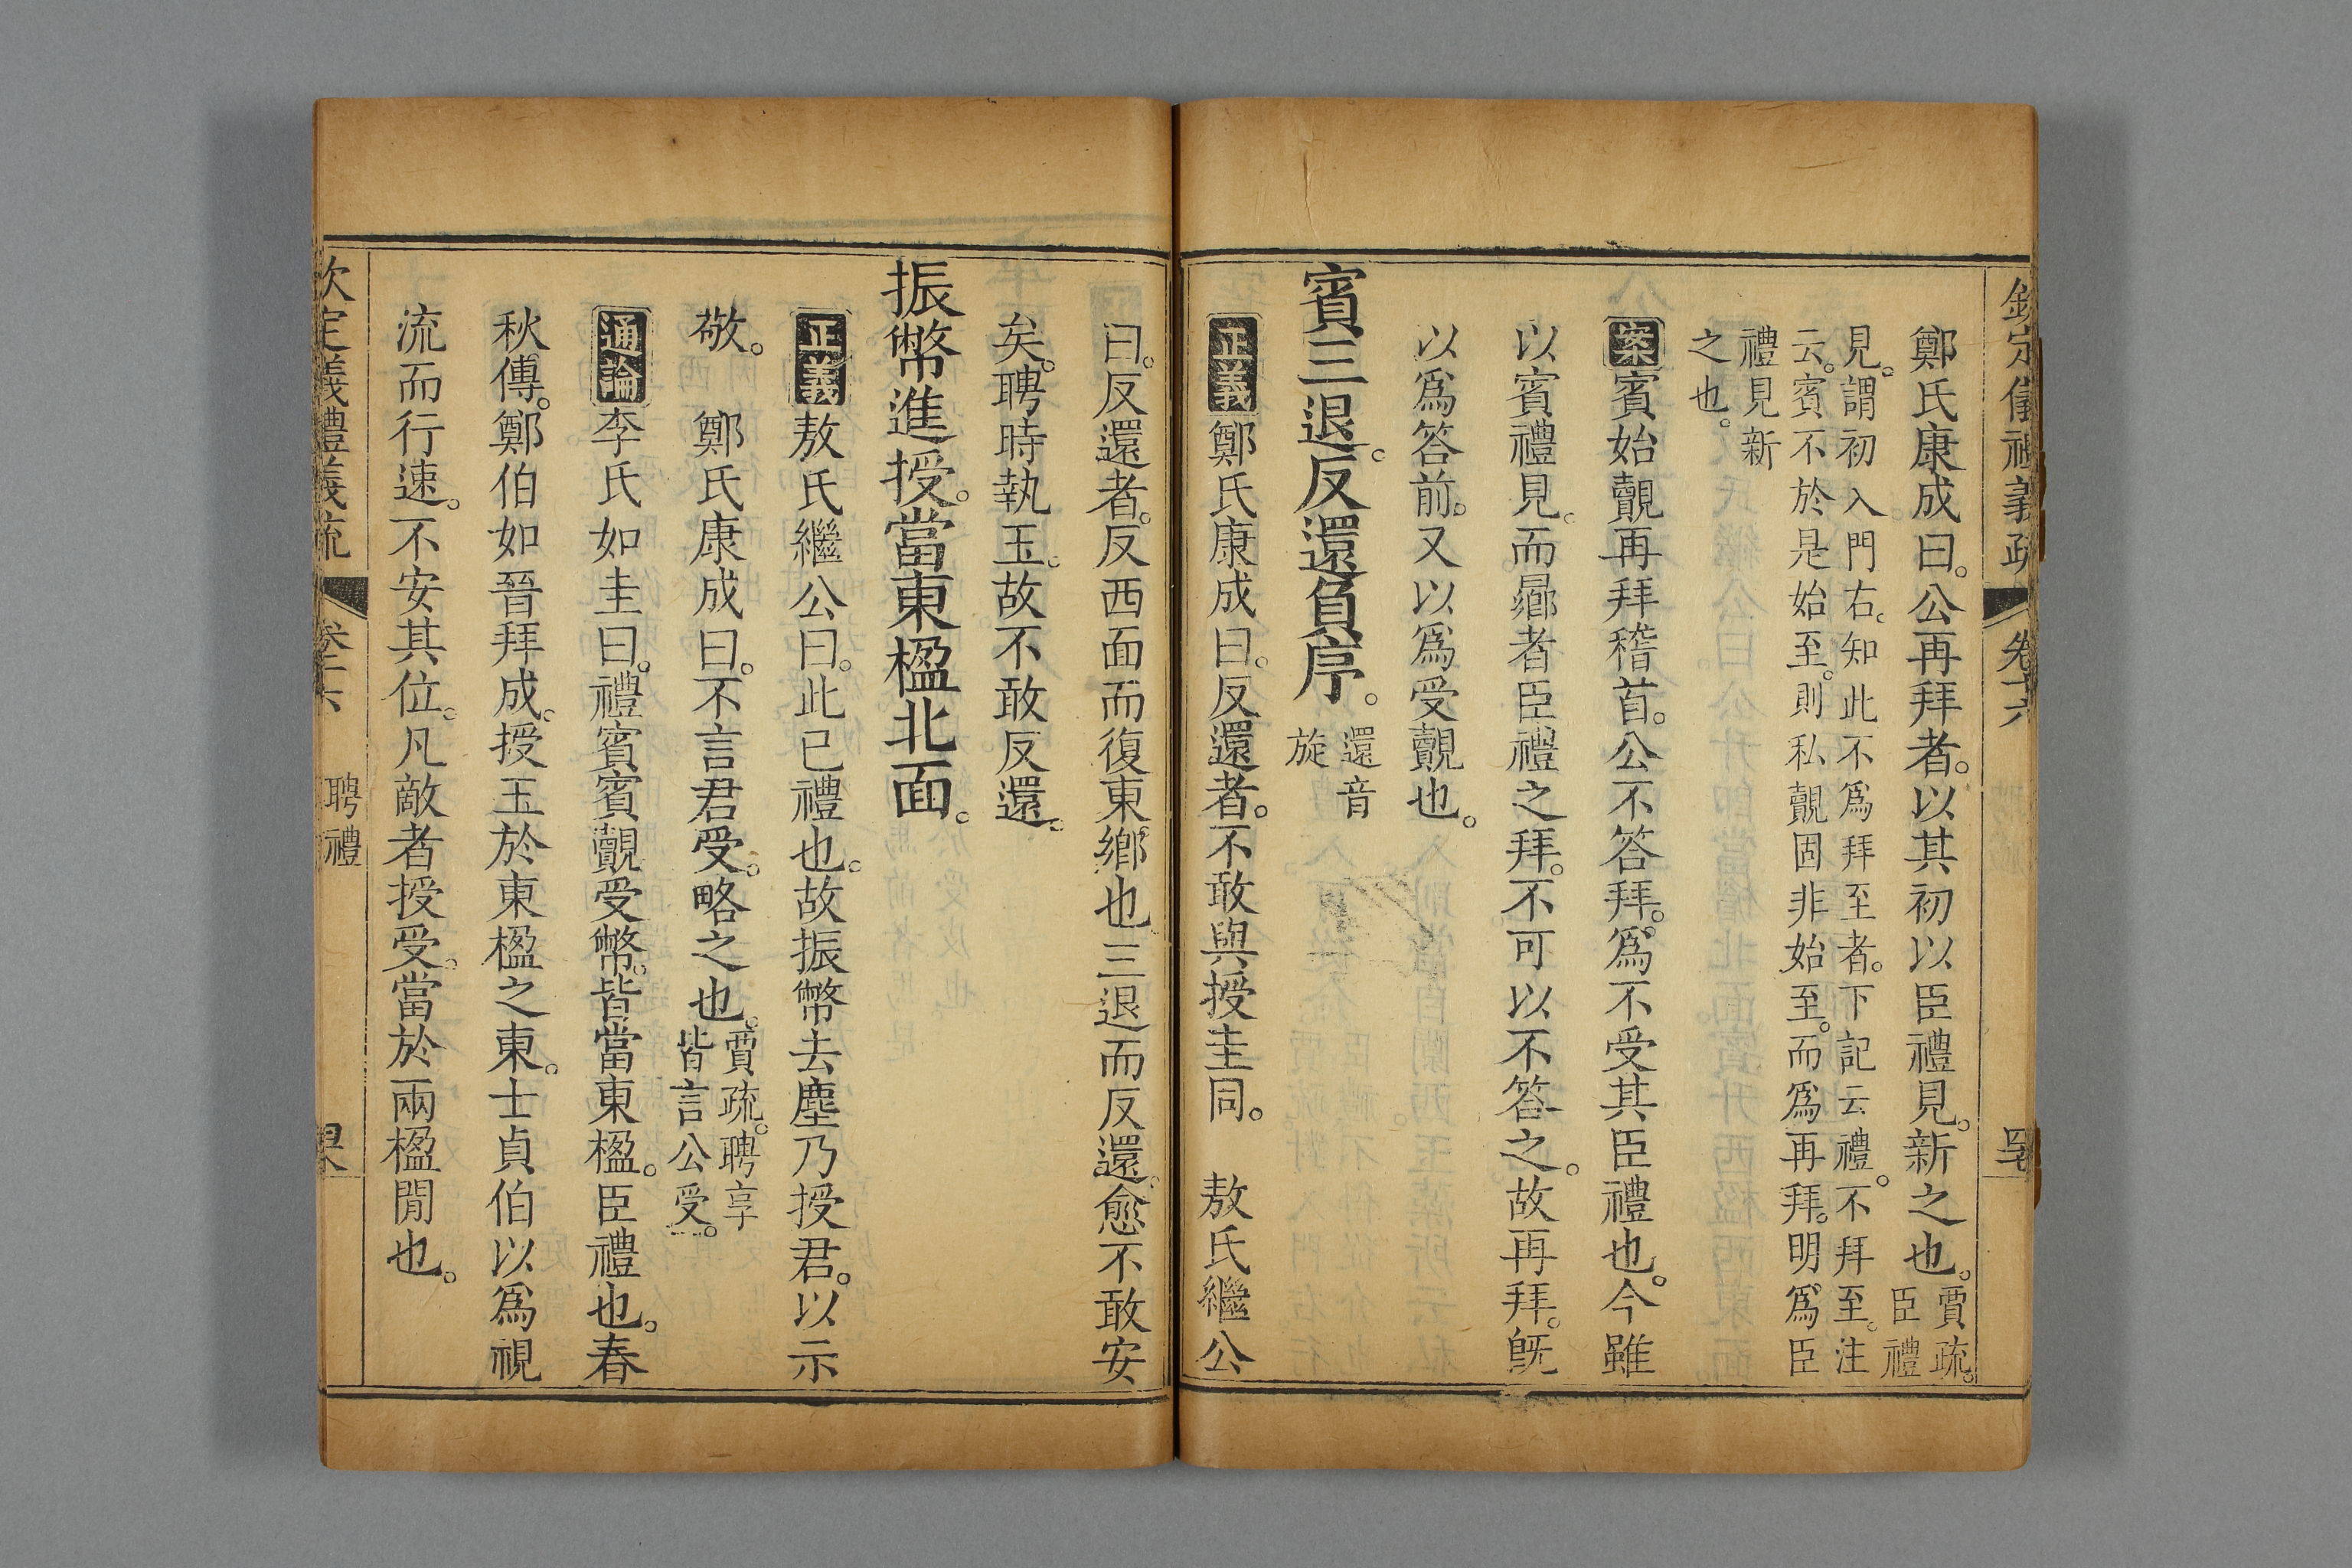 欽定儀禮義疏 卷十六
鄭氏康成曰。公再拜者。以其初以臣禮見。新之也。賈疏。臣禮
見。謂初入門右。知此不爲拜至者。下記云禮。不拜至。注
云。賓不於是始至。則私覿固非始至。而爲再拜。明爲臣
禮見新
之也。
案賓始覿再拜稽首。公不答拜。爲不受其臣禮也。今雖
以賓禮見。而曏者臣禮之拜。不可以不答之。故再拜。旣
以爲答前。又以爲受覿也。
賓三退。反還負序。還音旋
正義鄭氏康成曰。反還者。不敢與授圭同。 敖氏繼公
曰。反還者。反西面而復東鄉也。三退而反還。愈不敢安
矣。聘時執玉。故不敢反還。
振幣進授。當東楹北面。
正義敖氏繼公曰。此已禮也。故振幣去塵乃授君。以示
敬。 鄭氏康成曰。不言君受。略之也。賈疏。聘享皆言公受。
通論李氏如圭曰。禮賓賓覿受幣。皆當東楹。臣禮也。春
秋傳。鄭伯如晉拜成。授玉於東楹之東。士貞伯以爲視
流而行速。不安其位。凡敵者授受。當於兩楹閒也。
欽定義禮義疏 卷十六 聘禮